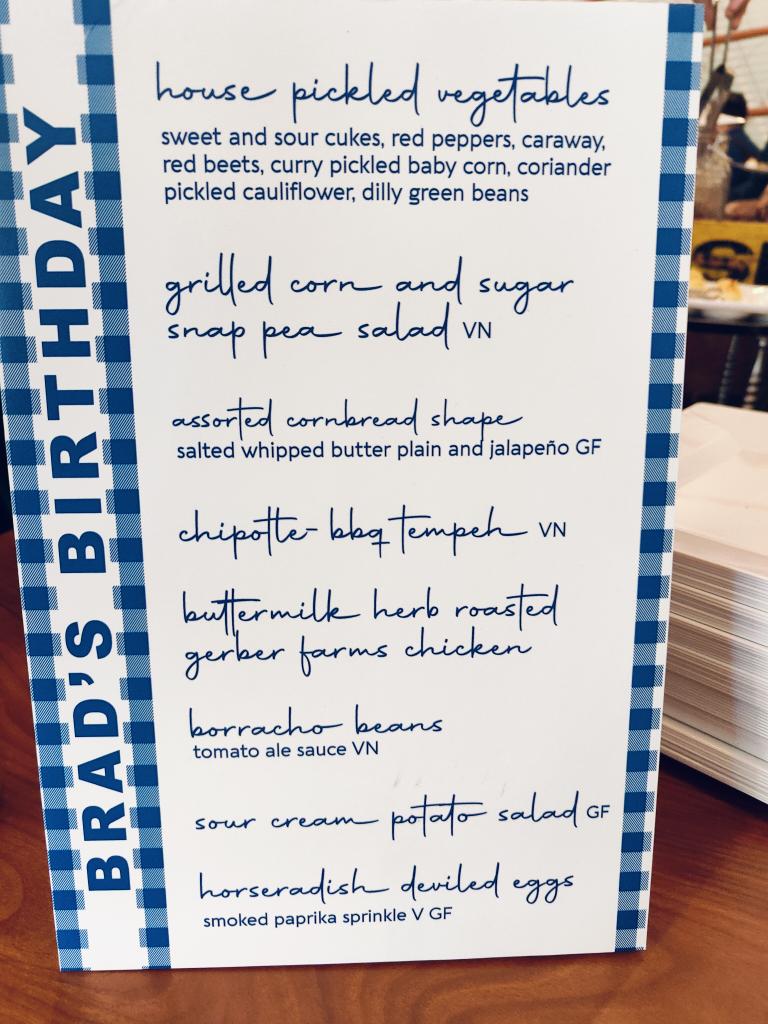 BRAD'S BIRTHDAY
house pickled vegetables
sweet and sour cukes, red peppers, caraway,
red beets, curry pickled baby corn, coriander
pickled cauliflower, dilly green beans
grilled corn and sugar
snap pea salad VN
assorted cornbread shape
salted whipped butter plain and jalapeño GF
chipotle-bbq tempeh VN
buttermilk herb roasted
gerber farms chicken
borracho beans
tomato ale sauce VN
sour cream potato salad GF
horseradish deviled eggs
smoked paprika sprinkle V GF